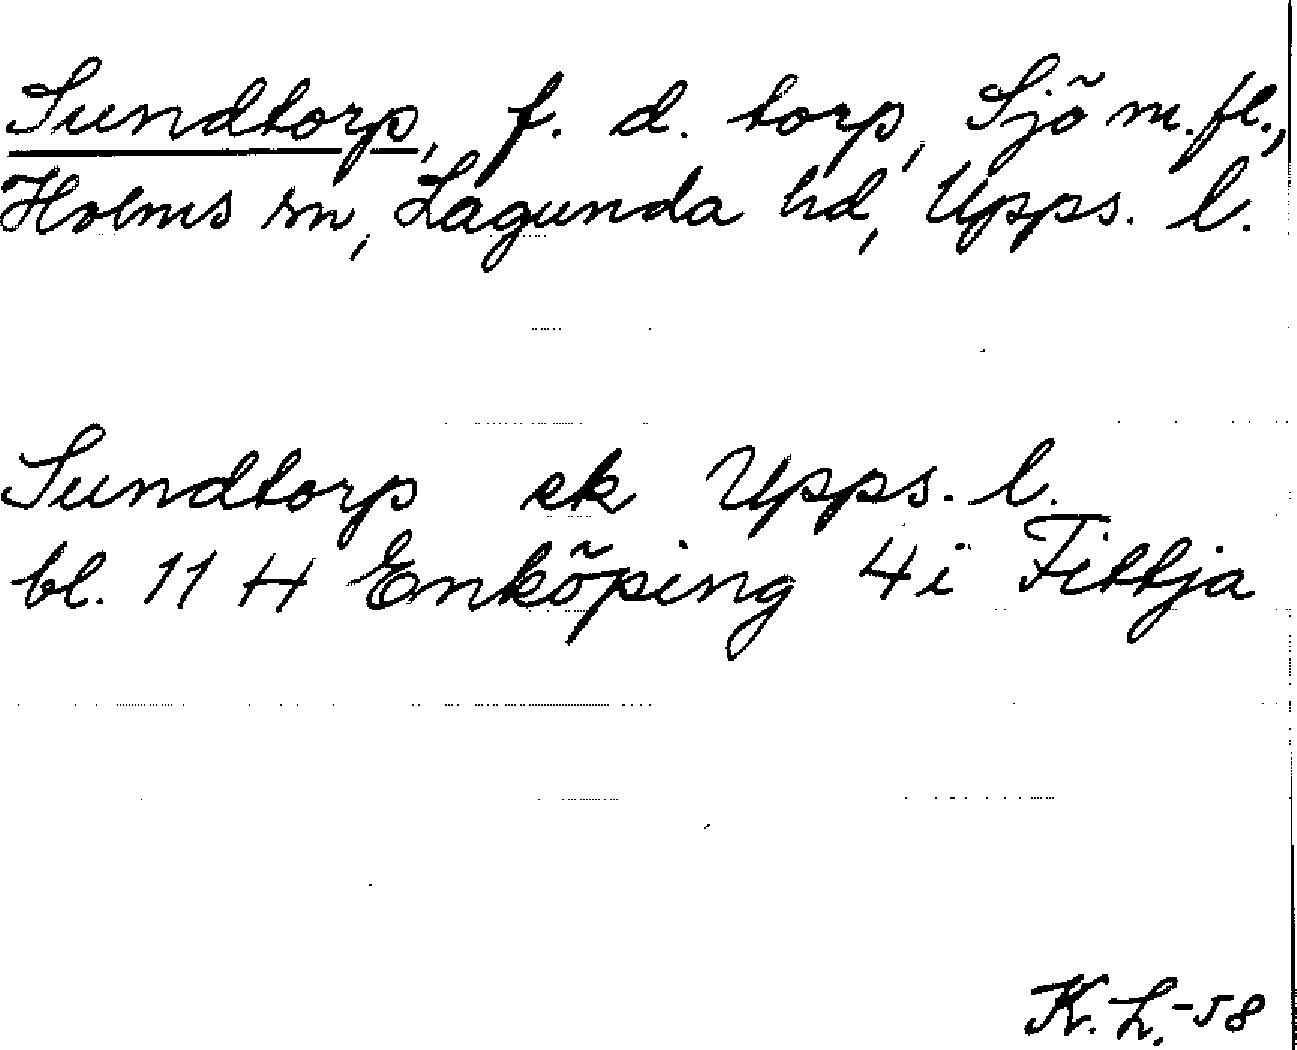 Sundtorp, f. d. torp, Sjö m. fl.,
Holms sn, Lagunda hd, Upps. l.
Sundtorp ek Upps. l.
bl. 11 H Enköping 4i Fittja
K. L. -58